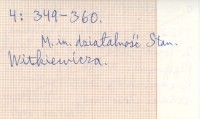 4: 349-360.
M. in. działalność Stan.
Witkiewicza.